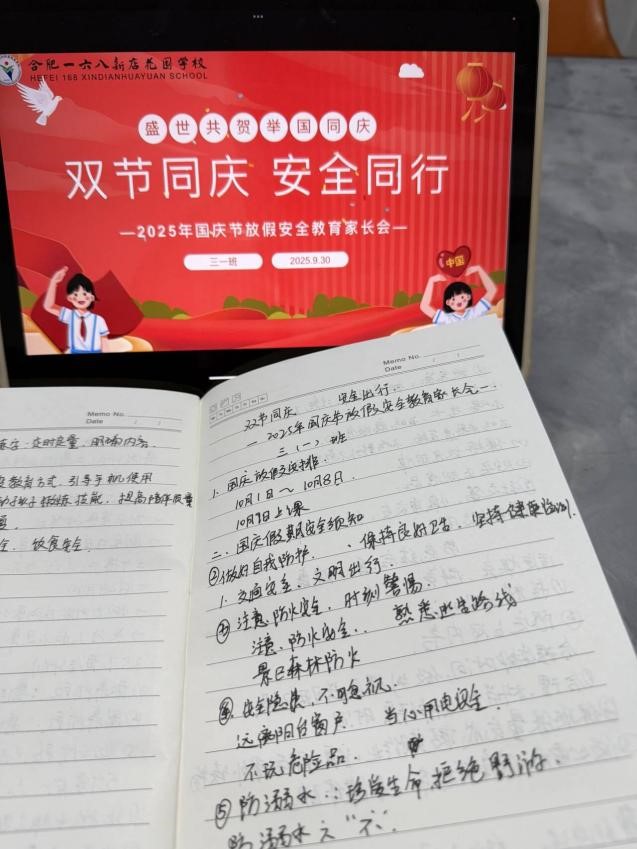 合肥一六八新店花园学校
HEFEI 168 XINDIANHUAYUAN SCHOOL
盛世共贺举国同庆
双节同庆 安全同行
—2025年国庆节放假安全教育家长会—
三一班
2025.9.30
中国
Memo No.
Date / /
引导手机使用
饮食安全.
Memo No.
Date / /
双节同庆 安全出行.
— 2025年国庆节放假安全教育家长会 —
三(一)班
1. 国庆放假安排.
10月1日~10月8日.
10月9日上课
二、国庆假期安全须知
②做好自我防护. 、保持良好卫生、坚持健康
1. 交通安全、文明出行.
注意防火安全, 时刻警惕.
注意防火安全.. 熟悉逃生路线
景区森林防火
安全隐患,不可忽视.
远离阳台窗户 当心用电安全.
不玩危险品.
⑤防溺水: 珍爱生命 拒绝野游.
防溺水六“不”.